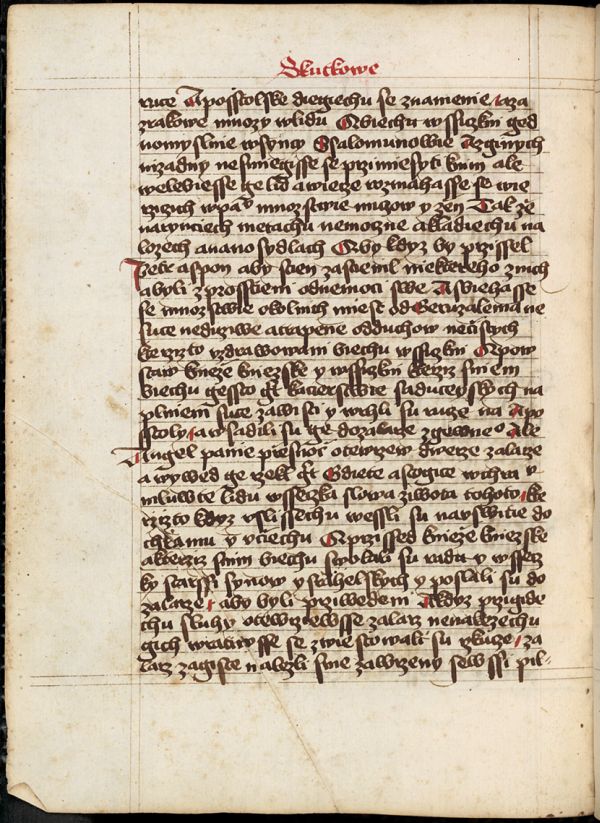 Skutkowe
ruce Aposstolske diegiechu se znamenie a za
zrakowe mnozy w lidu A biechu wssiczkni ged
nomyslnie w synczy Ssalomunowie A z ginych
nizadny nesmiegisse se przimiesyti knim ale
welebiesse ge lid a wiecze rozmahasse se wie
rzicych w panu mnozstwie muzow y zen Tak ze
na rynciech metachu nemoczne a kladiechu na
lozech a na nosydlach A by kdyz by przissel
Petr aspon aby stien zastienil niektereho z nich
a byli zprosstieni od nemoci swe A sbiehasse
se mnozstwie okolnich miest od Geruzalema ne
suce neduziwe a trapene od duchow neczistych
kterzizto uzdrawowani biechu wssiczkni A pow
staw knieze kniezske y wssiczkni kterziz s nim
biechu gessto gt kacierstwie saduceyskych na
plnieni suce zawisti y wrhli su ruce na Apo
sstoly a wsadili su ge do zalarze zgewneo Ale
Angel panie przes noc otewrzew dwerze zalarze
a wywed ge rzekl gt Gdiete a stogice w chra y
mluwte lidu wsseczka slowa ziwota tohoto kte
rzizto kdyz uslissechu wessli su na uswitie do
chramu y uciechu A przissed knieze kniezske
a kterziz s nim biechu swolali su radu y wssecz
ky starssi synow yzrahelskych y poslali su do
zalarze aby byli przivedeni A kdyz przigide
chu sluhy otewrzewsse zalarz nenalezechu
gich wratiwsse se zwiestowali su rzkuce za
larz zagiste nalezli sme zawrzeny se wssi pil-